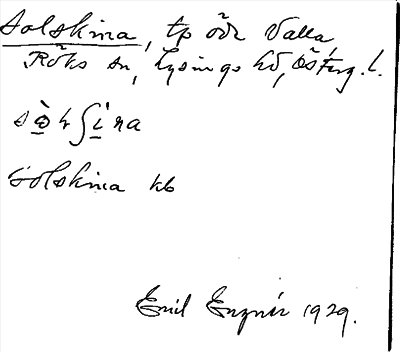 Solskina, tp ödr Valla
Röks sn, Lysings hd, Östergl.
sò̱hʃi̱na
Solskina kb
Emil Engnér 1929.